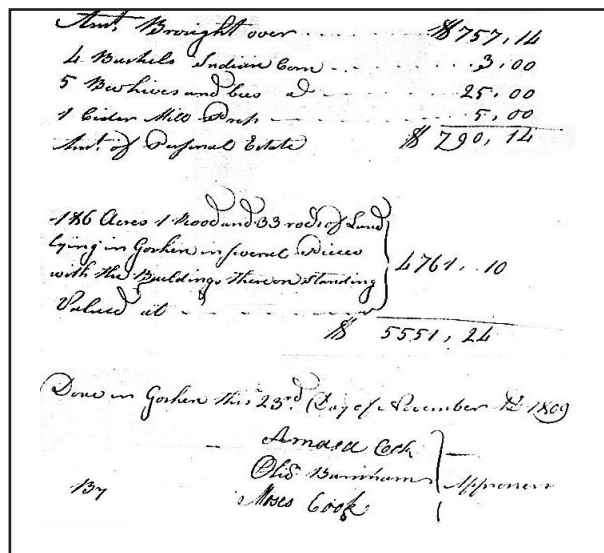 Amt. Brought over - - - - - $757,14
4 Bushels Indian Corn - - - - 3,00
5 Beehives and bees - - - - 25,00
1 Cider Mill Press - - - 5,00
Amt. of Personal Estate $790,14
186 Acres 1 Rood and 33 rods of Land
lying in Goshen in several Pieces
with the Buildings thereon Standing 4761,10
Valued at - - - - -
$ 5551,24
Done in Goshen this 23rd. Day of November 1809
Cook
Burnham Apprisers
By Moses Cook